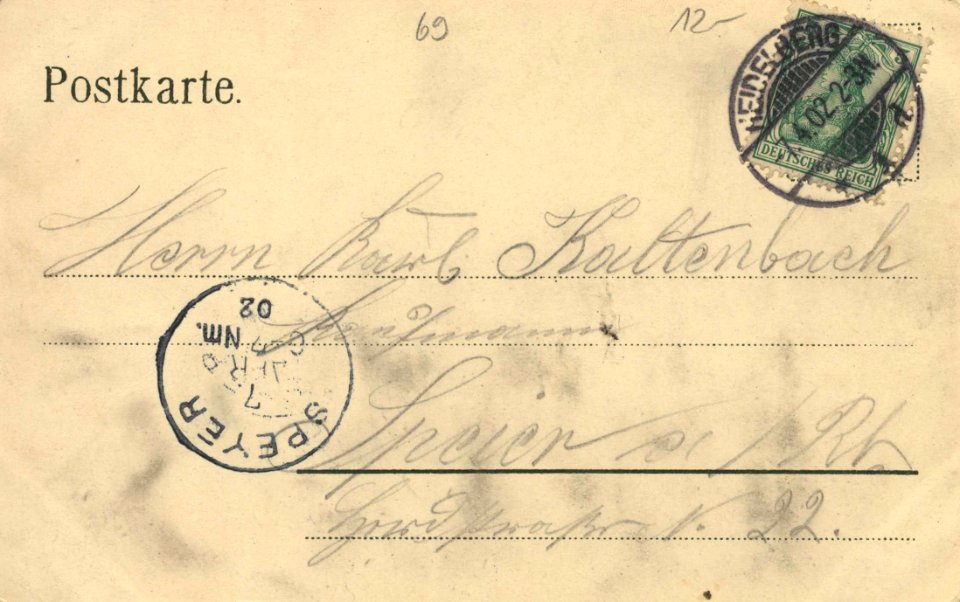 69 12-
Postkarte.
HEIDELBERG
4.02.2-3N.
DEUTSCHES REICH
Herrn Karl Kaltenbach
Kaufmann
Speier a/Rh
N. 22.
SPEYER
7
Nm.
02